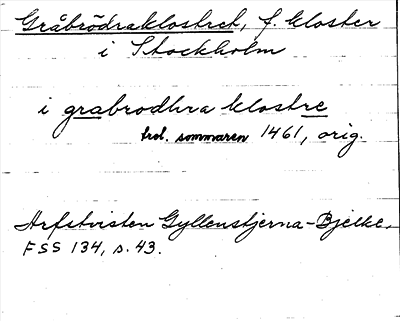 Gråbrödraklostret, f. kloster
i Stockholm
i grabrodhra klostre
trol. sommaren 1461, orig.
Arfstvisten Gyllenstjerna-Bjelke,
FSS 134, s. 43.